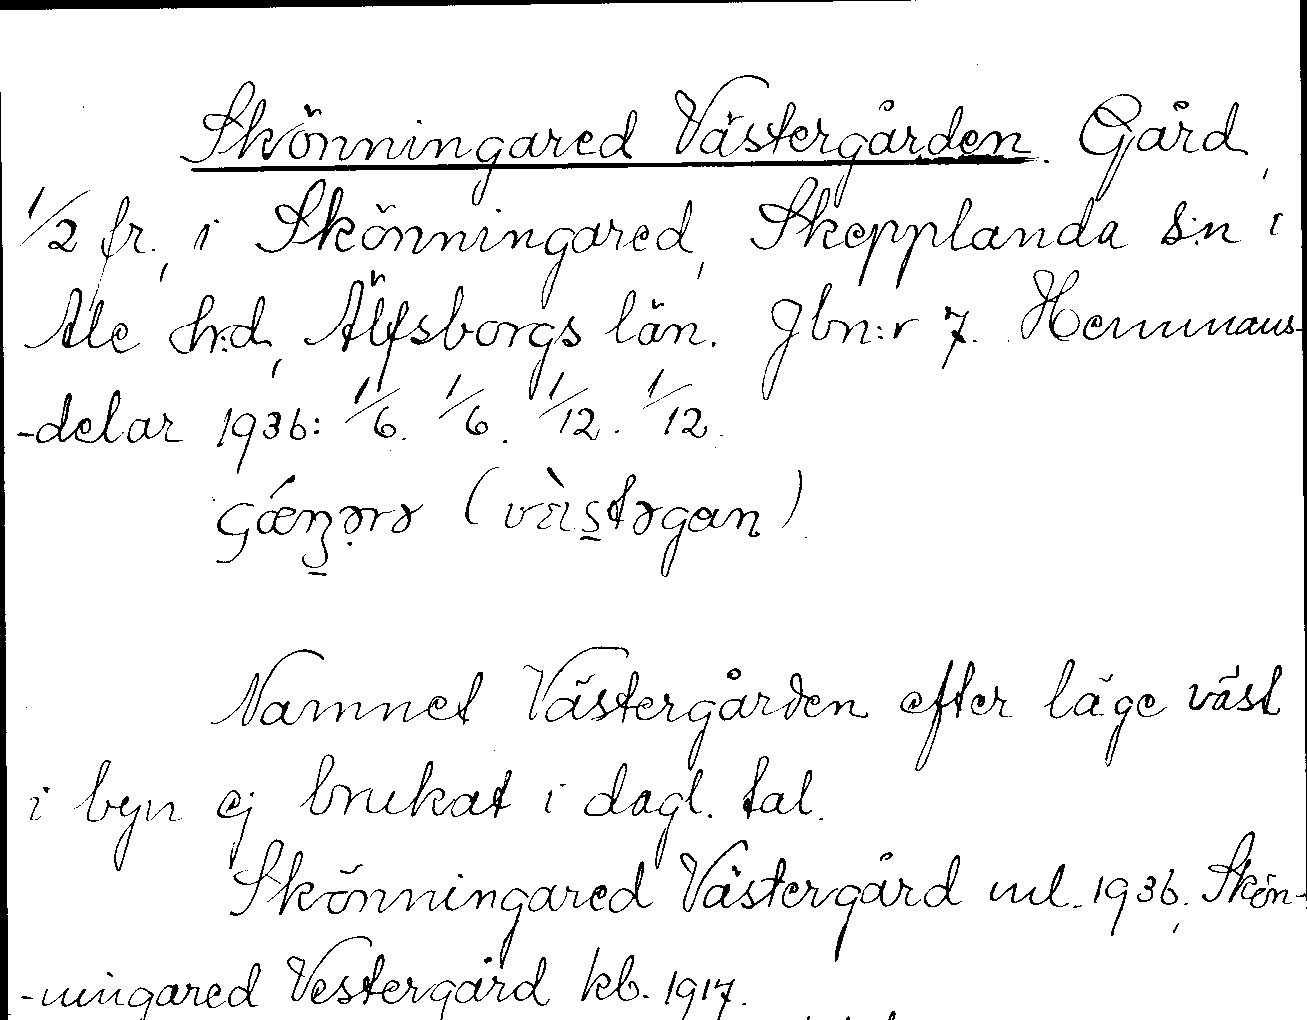 Skönningared Västergården. Gård,
1/2 fr., i Skönningared, Skepplanda s:n i
Ale h:d, Älfsborgs län. Jbn:r 7. Hemmans-
-delar 1936: 1/6. 1/6. 1/12. 1/12.
Namnet Västergården efter läge väst
i byn ej brukat i dagl. tal.
Skönningared Västergård ml. 1936, Skön-
-ningared Vestergård kb. 1917.